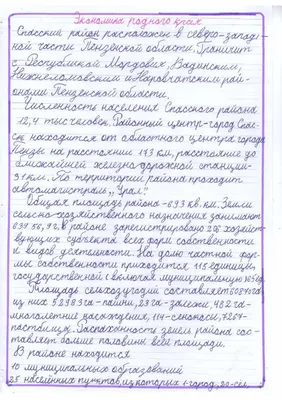 Экономика родного края
Спасский район расположен в северо-запад-
ной части Пензенской области. Граничит
с Республикой Мордовия, Вадинским,
Нижнеломовским и Наровчатским рай-
онами Пензенской области.
Численность населения Спасского района
12,4 тыс человек. Районный центр-город Спас-
ск находится от областного центра города
Пензы на расстоянии 175 км, расстояние до
ближайшей железно-дорожной станции-
На территории района проходит
автомагистраль „Урал"
Общая площадь района - 693 кв. км. Земли
сельско-хозяйственного назначения занимают
В районе зарегистрировано 206 хозяйст-
вующих субъекта всех форм собственности
и видов деятельности. На долю частной фор-
мы собственности приходится 115 единиц,
государственной с волостей муниципальную
Площадь сельхозугодий составляет
из них 52983га-пашни, 292га-залежи, 482га-
многолетние насаждения, 114-сенокосы, 7267-
пастбища. Распаханность земель района сос-
тавляет больше половины всей площади.
В районе находится
10 муниципальных образований
25 населённых пунктов, из которых 1-город, 20-сёл